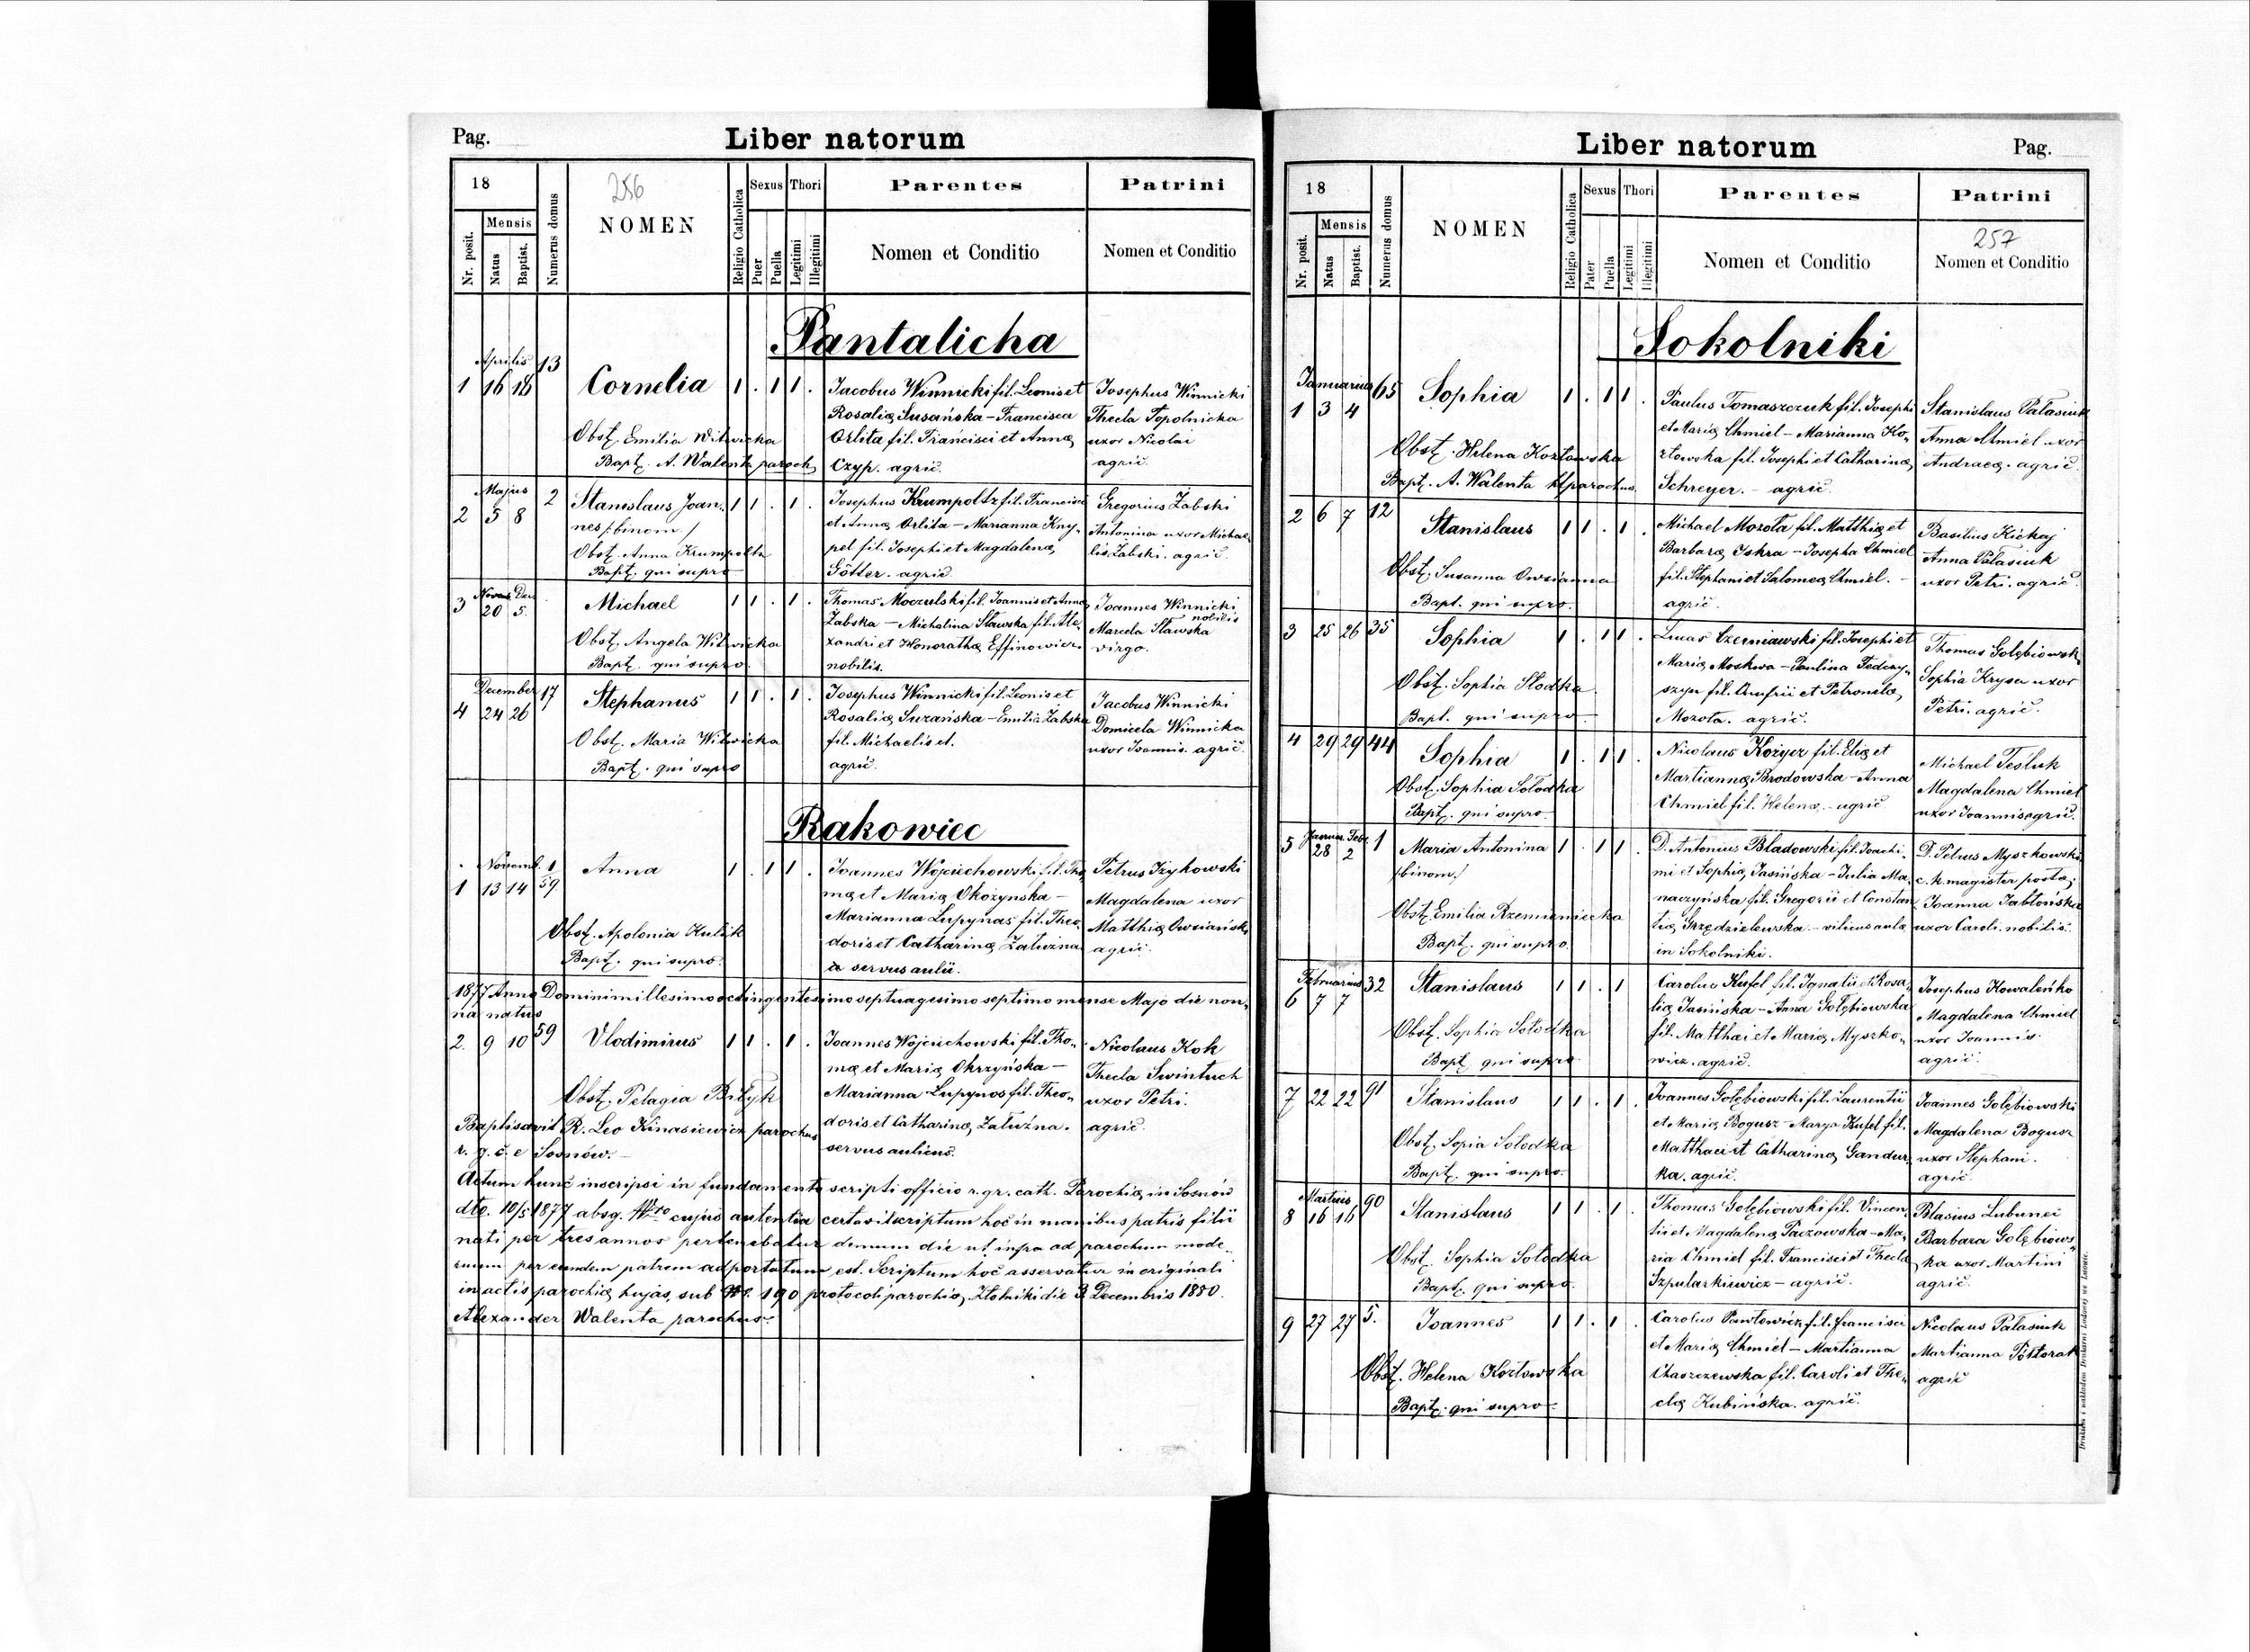 Pag.
Liber natorum
18
256
Nr. posit.
Mensis
Natus
Baptist.
Numerus domus
NOMEN
Religio Catholica
Sexus
Puer
Puella
Thori
Legitimi
Illegitimi
Parentes
Nomen et Conditio
Patrini
Nomen et Conditio
Pantalicha
Aprilis
1 16 18 13 Cornelia 1 . 1 1 .
Obst. Emilia Witwicka
Bapt. A. Walenta paroch,
Jacobus Winnicki fil. Leonis et
Rosaliæ Susańska - Francisca
Orlita fil. Francisci et Annæ
Czyp. agric.
Josephus Winnicki
Thecla Topolnicka
uxor Nicolai
agric.
Majus
2 5 8 2 Stanislaus Joan-
nes /:binom:/ 1 1 . 1 .
Obst. Anna Krumpoltz
Bapt. qui supra
Josephus Krumpoltz fil. Francisci
et Annæ Orlita - Marianna Kny-
pel fil. Josephi et Magdalenæ
Götter. agric.
Gregorius Żabski
Antonina uxor Michae-
lis Żabski. agric.
3 20 5. Michael 1 1 . 1 .
Obst. Angela Witwicka
Bapt. qui supra
Thomas Moczulski fil. Joannis et Annæ
Żabska - Michalina Sławska fil. Ale-
xandri et Honorathæ Effinowicz.
nobilis.
Joannes Winnicki
nobilis
Marcela Sławska
virgo.
December
4 24 26 17 Stephanus 1 1 . 1 .
Obst. Maria Witwicka
Bapt. qui supra
Josephus Winnicki fil. Leonis et
Rosaliæ Suzańska - Emilia Żabska
fil. Michaelis et.
agric.
Jacobus Winnicki
Domicela Winnicka
uxor Joannis. agric.
Rakowiec
Novemb.
1 13 14 59 Anna 1 . 1 1 .
Obst. Apolonia Kulik
Bapt. qui supra.
Joannes Wojciechowski fil. Tho-
mæ et Mariæ Okożynska -
Marianna Łupynas fil. Theo-
doris et Catharinæ Załużna
servus aulii.
Petrus Iżykowski
Magdalena uxor
Matthiæ Owsiański
agric.
1877 Anno Domini millesimo octingentesimo septuagesimo septimo mense Majo die non-
na natus
2. 9 10 59 Vlodimirus 1 1 . 1 .
Obst. Pelagia Biłyk
Joannes Wojciechowski fil. Tho-
mæ et Mariæ Okrzyńska -
Marianna Łupynos fil. Theo-
doris et Catharinæ Załużna.
servus aulicus.
Nicolaus Kok
Thecla Swintuch
uxor Petri.
agric.
Baptisavit R. Leo Kinasiewicz parochus
r. g. c. e Sosnów.
Actum hunc inscripsi in fundamento scripti officio r. gr. cath. Parochiæ in Sosnów
dto. 10/5 1877 absq. Nro cujus autentia certavit scriptum hoc in manibus patris filii
nati per tres annos pertenebatur demum die ut infra ad parochum mode-
rnum per eundem patrem adportatum est. Scriptum hoc asservatur in originali
in actis parochiæ hujas, sub Nr. 190 protocoli parochiæ, Złotniki die 3 Decembris 1880.
Alexander Walenta parochus
Liber natorum
Pag.
18
Nr. posit.
Mensis
Natus
Baptist.
Numerus domus
NOMEN
Religio Catholica
Sexus
Pater
Puella
Thori
Legitimi
Illegitimi
Parentes
Nomen et Conditio
Patrini
257
Nomen et Conditio
Sokolniki
Januarius
1 3 4 65 Sophia 1 . 1 1 .
Obst. Helena Kozłowska
Bapt. A. Walenta parochus.
Paulus Tomaszczuk fil. Josephi
et Mariæ Chmiel - Marianna Ko-
złowska fil. Josephi et Catharinæ
Schreyer. - agric.
Stanislaus Pałasiuk
Anna Chmiel uxor
Andraeæ. agric.
2 6 7 12 Stanislaus 1 1 . 1 .
Obst. Susanna Owsianna
Bapt. qui supra.
Michael Mozota fil. Matthiæ et
Barbaræ Iskra - Josepha Chmiel
fil. Stephani et Salomeæ Chmiel. -
agric.
Basilius Kickaj
Anna Pałasiuk
uxor Petri. agric.
3 25 26 35 Sophia 1 . 1 1 .
Obst. Sophia Słodka
Bapt. qui supra
Lucas Czerniawski fil. Josephi et
Mariæ Moskwa - Paulina Fedczy-
szyn fil. Onufrii et Petronelæ
Mozota. agric.
Thomas Gołębiowski
Sophia Krysa uxor
Petri. agric.
4 29 29 44 Sophia 1 . 1 1 .
Obst. Sophia Sołodka
Bapt. qui supra.
Nicolaus Kożycz fil. Eliæ et
Martiannæ Brodowska - Anna
Chmiel fil. Helenæ - agric
Michael Tesluk
Magdalena Chmiel
uxor Joannis agric.
5 28 2 1 Maria Antonina 1 . 1 1 .
/binom/
Obst. Emilia Rzemieniecka
Bapt. qui supra.
D. Antonius Bladowski fil. Joachi-
mi et Sophiæ Jasińska - Julia Ma-
naczyńska fil. Gregorii et Constan-
tiæ Grzędzielewska. - vilicus aulæ
in Sokolniki.
D. Petrus Myszkowski
c. k. magister postæ;
Joanna Jabłońska
uxor Caroli. nobilis.
Februarius
6 7 7 32 Stanislaus 1 1 . 1
Obst. Sophia Sołodka
Bapt. qui supra
Carolus Kufel fil. Ignatii et Rosa-
liæ Jasińska - Anna Gołębiowska
fil. Matthæi et Mariæ Myszko-
wicz. agric.
Josephus Kowaleńko
Magdalena Chmiel
uxor Joannis.
agric.
7 22 22 91 Stanislaus 1 1 . 1 .
Obst. Sopia Sołodka
Bapt. qui supra.
Joannes Gołębiowski fil. Laurentii
et Mariæ Bogusz - Marya Kufel fil.
Matthaei et Catharinæ Gandur-
ka. agric.
Joannes Gołębiowski
Magdalena Bogusz
uxor Stephani.
agric.
Martius
8 16 16 90 Stanislaus 1 1 . 1 .
Obst. Sophia Sołodka
Bapt. qui supra.
Thomas Gołębiowski fil. Vincen-
tii et Magdalenæ Paczowska - Ma-
ria Chmiel fil. Francisci et Theclæ
Szpularkiewicz - agric.
Blasius Lubunei
Barbara Gołębiows-
ka uxor Martini
agric.
9 27 27 5. Joannes 1 1 . 1 .
Obst. Helena Kozłowska
Bapt. qui supra
Carolus Pawłowicz fil. francisci
et Mariæ Chmiel - Martianna
Chaszczewska fil. Caroli et The-
clæ Kubińska. agric.
Nicolaus Pałasiuk
Martianna Półtorak
agric
Drukiem i nakładem Drukarni Ludowej we Lwowie.